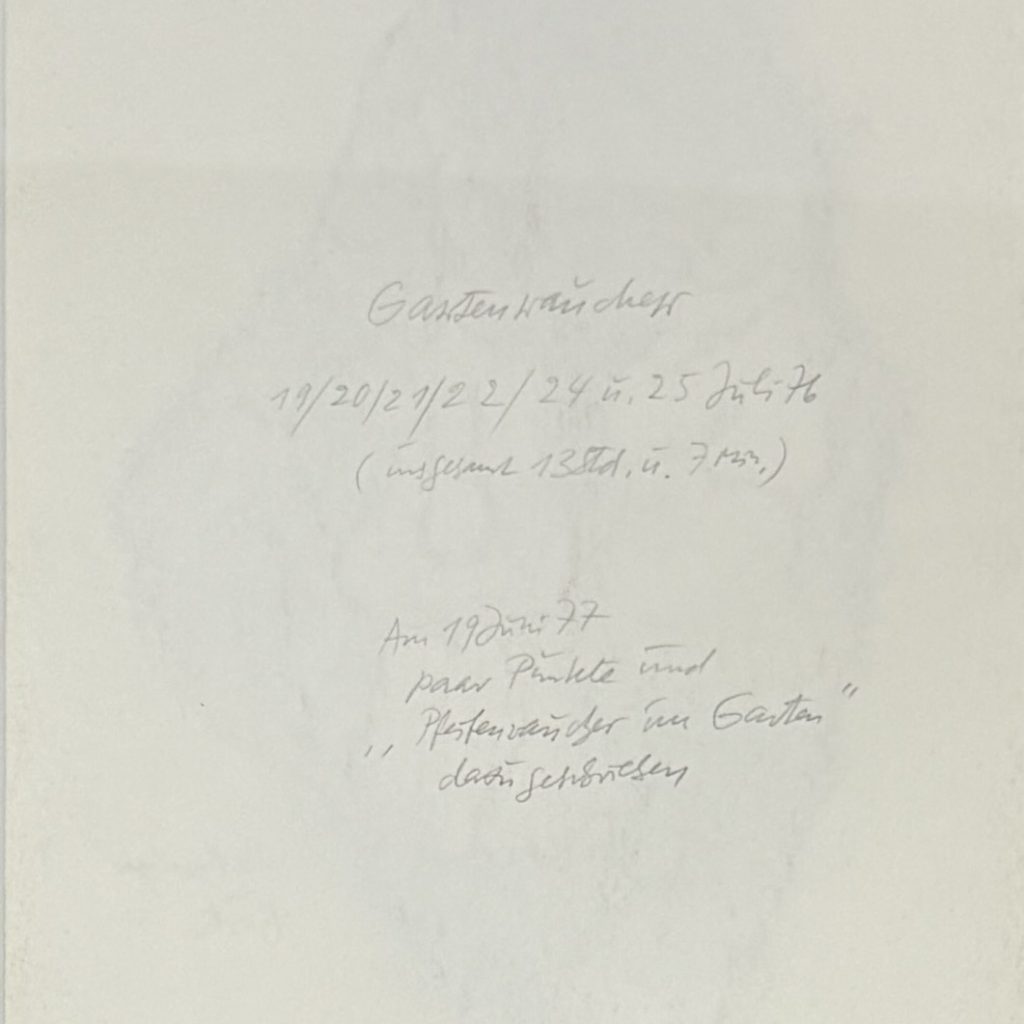 Gartenraucher
19/20/21/22/24 u. 25 Juli 76
(insgesamt 13 Std. u. 7 Min.)
Am 19 Juni 77
paar Punkte und
„Pfeifenraucher im Garten“
dazugeschrieben